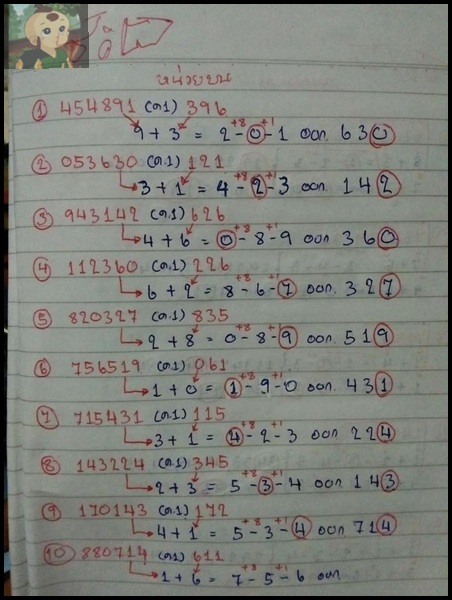 หน่วยบน
① 454891 (ต.1) 396
9 + 3 = 2 -⁺⁸ 0 -⁺¹ 1 ออก 630
② 053630 (ต.1) 121
3 + 1 = 4 -⁺⁸ 2 -⁺¹ 3 ออก 142
③ 943142 (ต.1) 626
4 + 6 = 0 -⁺⁸ 8 -⁺¹ 9 ออก 360
④ 112360 (ต.1) 226
6 + 2 = 8 -⁺⁸ 6 -⁺¹ 7 ออก 327
⑤ 820327 (ต.1) 835
2 + 8 = 0 -⁺⁸ 8 -⁺¹ 9 ออก 519
⑥ 756519 (ต.1) 061
1 + 0 = 1 -⁺⁸ 9 -⁺¹ 0 ออก 431
⑦ 715431 (ต.1) 115
3 + 1 = 4 -⁺⁸ 2 -⁺¹ 3 ออก 224
⑧ 143224 (ต.1) 345
2 + 3 = 5 -⁺⁸ 3 -⁺¹ 4 ออก 143
⑨ 170143 (ต.1) 172
4 + 1 = 5 -⁺⁸ 3 -⁺¹ 4 ออก 714
⑩ 880714 (ต.1) 611
1 + 6 = 7 -⁺⁸ 5 -⁺¹ 6 ออก